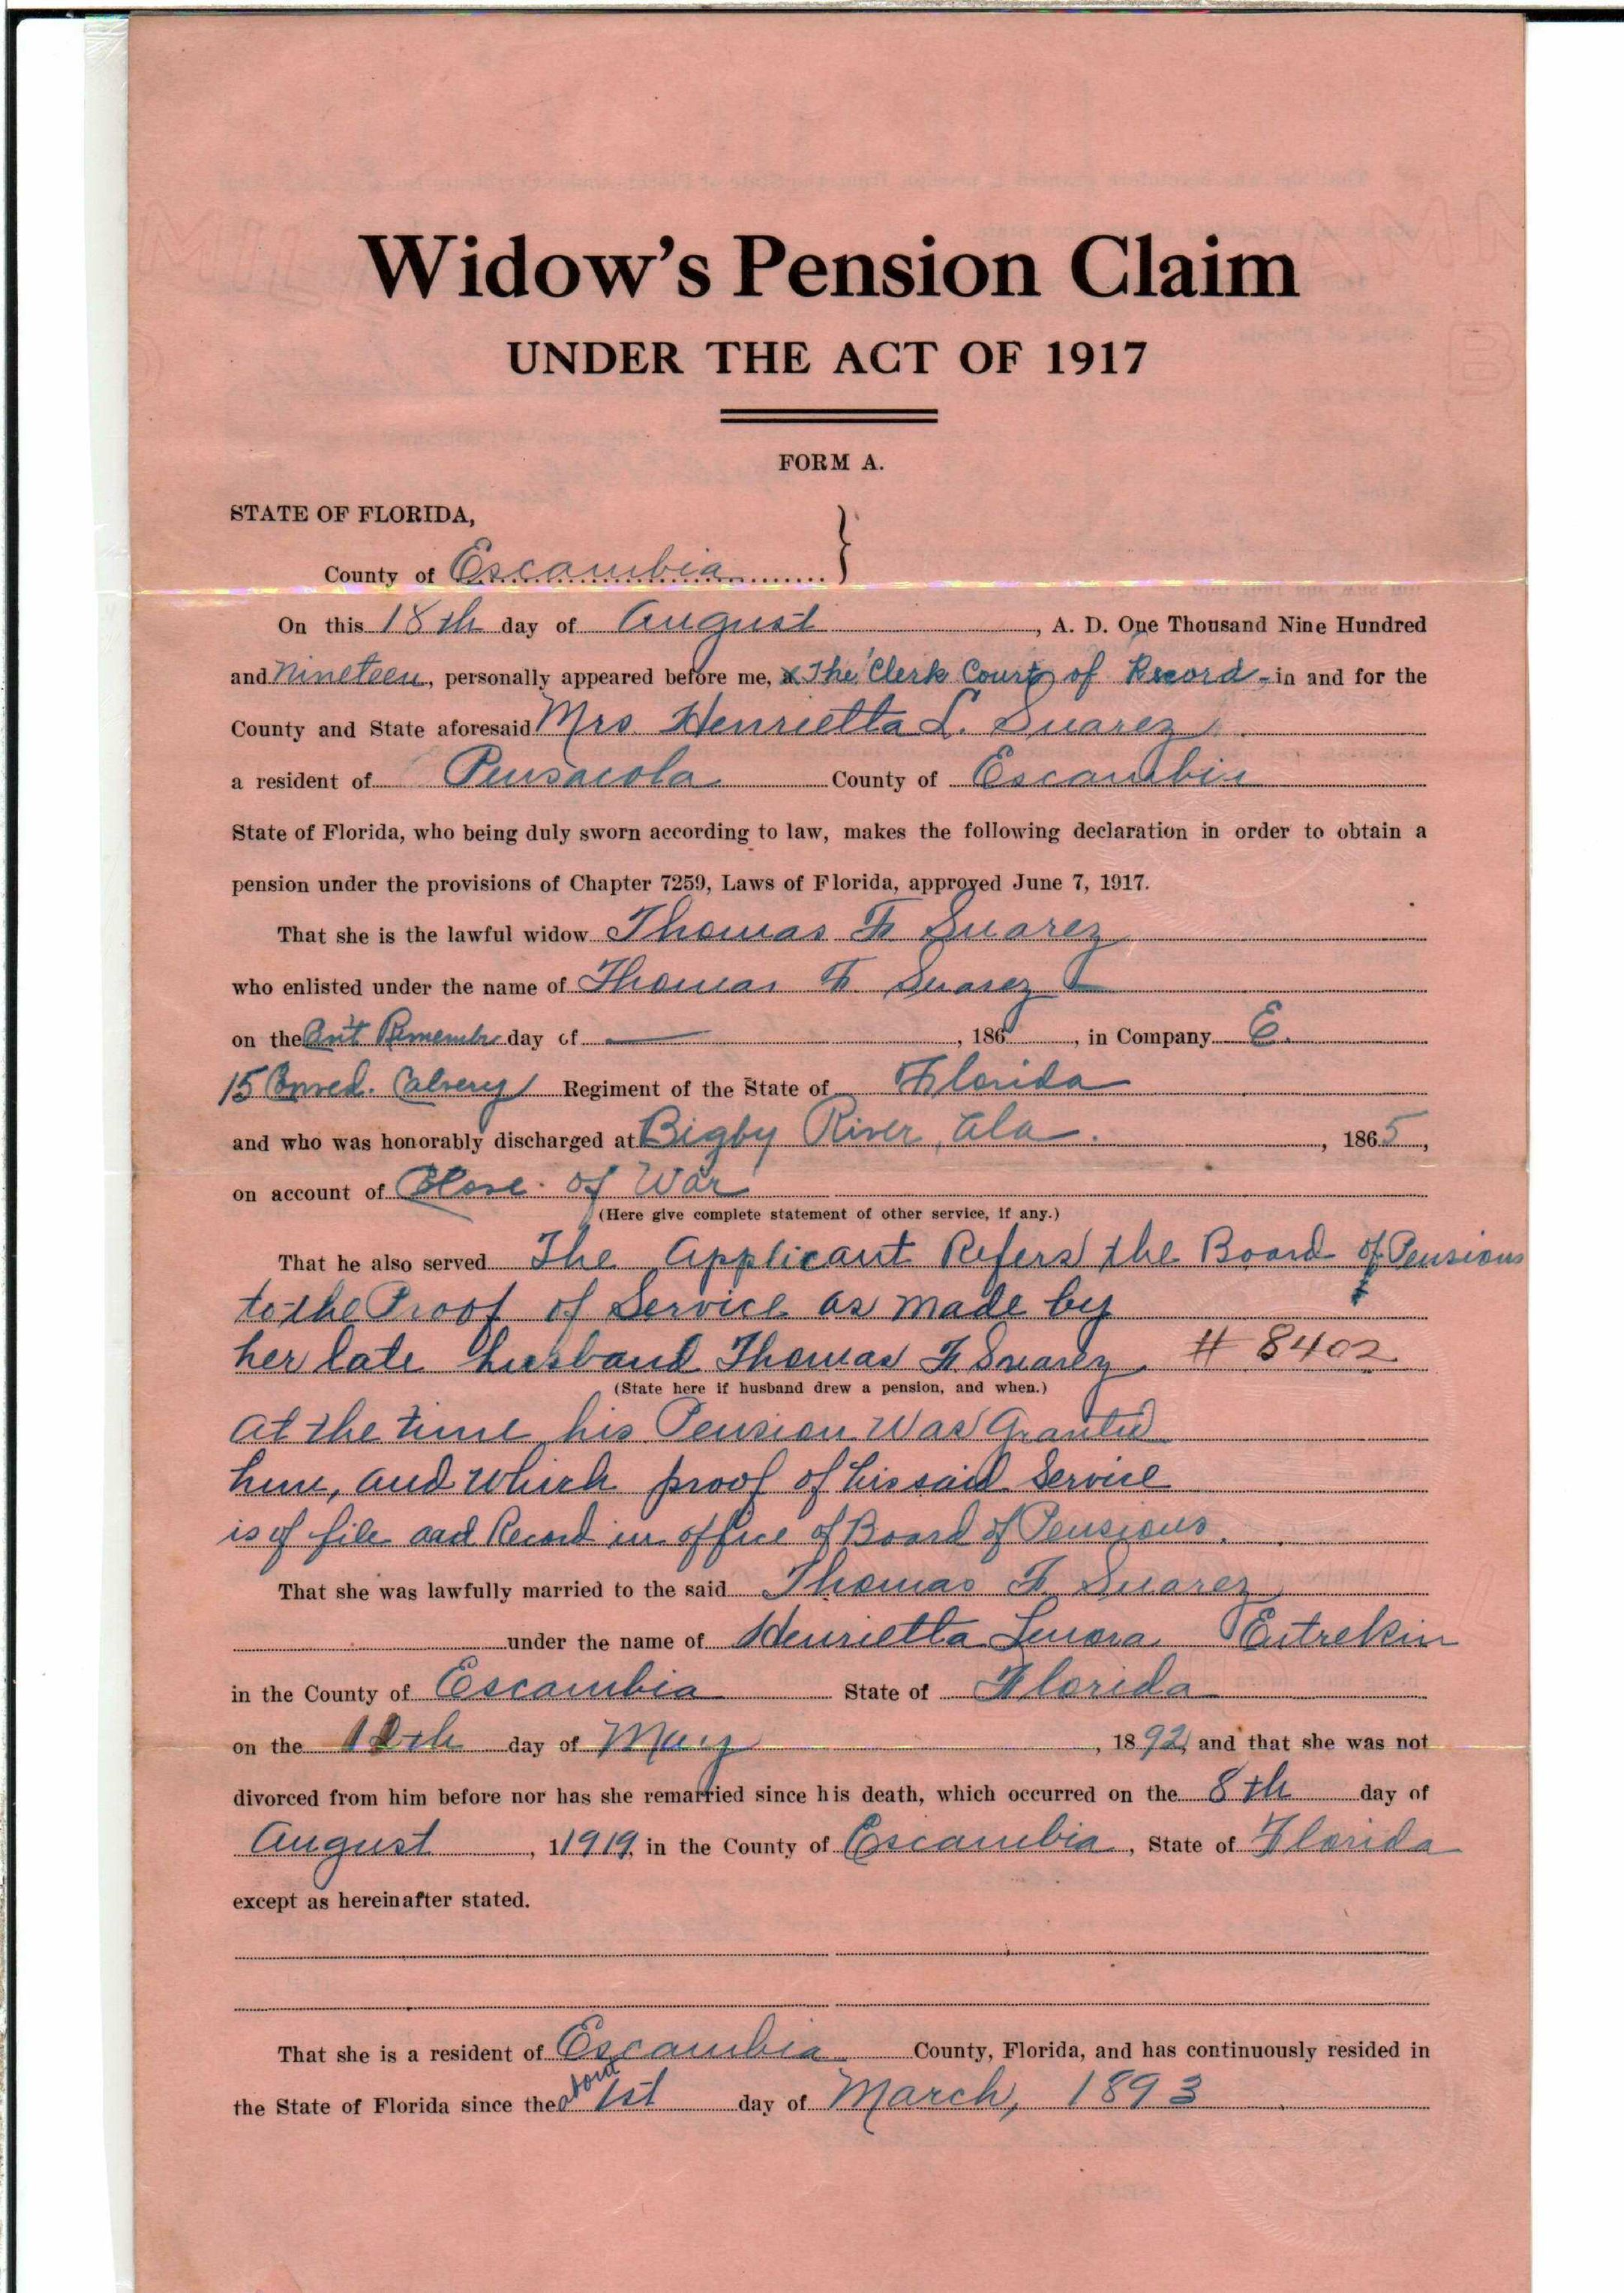 Widow's Pension Claim
UNDER THE ACT OF 1917
FORM A.
STATE OF FLORIDA,
County of Escambia
On this 18th day of August, A. D. One Thousand Nine Hundred
and Nineteen, personally appeared before me, The Clerk Court of Record in and for the
County and State aforesaid Mrs Henrietta L. Suarez
a resident of Pensacola County of Escambia
State of Florida, who being duly sworn according to law, makes the following declaration in order to obtain a
pension under the provisions of Chapter 7259, Laws of Florida, approved June 7, 1917.
That she is the lawful widow Thomas F Suarez
who enlisted under the name of Thomas F. Suarez
on the Remember day of —, 186, in Company E.
15 Calvery Regiment of the State of Florida
and who was honorably discharged at Bigby River, Ala., 1865,
on account of Close of War
(Here give complete statement of other service, if any.)
That he also served The Applicant Refers the Board of Pensions
to the Proof of Service as made by
her late husband Thomas F Suarez # 8402
(State here if husband drew a pension, and when.)
at the time his Pension Was Granted
him, and which proof of his said Service
is of file and Record in office of Board of Pensions.
That she was lawfully married to the said Thomas F. Suarez
under the name of Henrietta Lenora Entrekin
in the County of Escambia State of Florida
on the day of May, 1892, and that she was not
divorced from him before nor has she remarried since his death, which occurred on the 8th day of
August, 11919, in the County of Escambia, State of Florida
except as hereinafter stated.
That she is a resident of Escambia County, Florida, and has continuously resided in
the State of Florida since the about 1st day of March, 1893